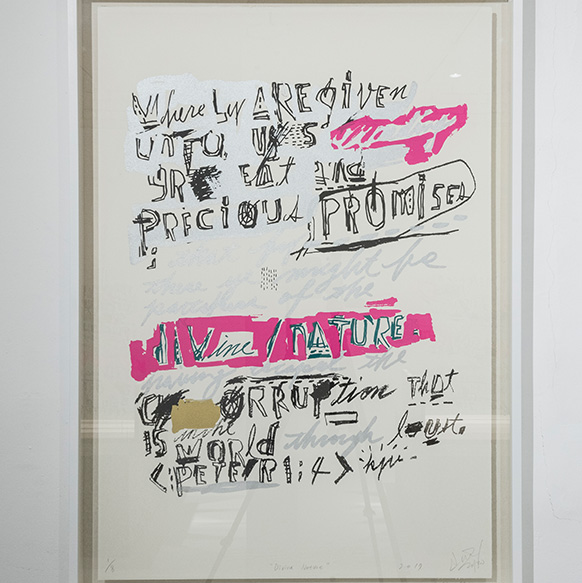 Whereby ARE given
UNTO US
GREAT AND
PRECIOUS PROMISES
; that
these ye might be
partakers of the
divine / NATURE.
having the
CORRUPtion THAT
IS in the
WORLD through lust.
<:PETER 1:4>
1/8 "Divine Nature" 2019